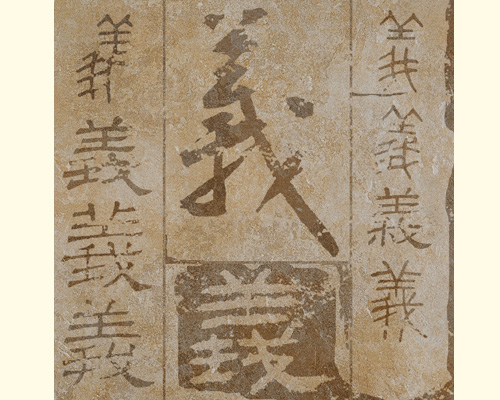 義義義義
義
義
義義義義